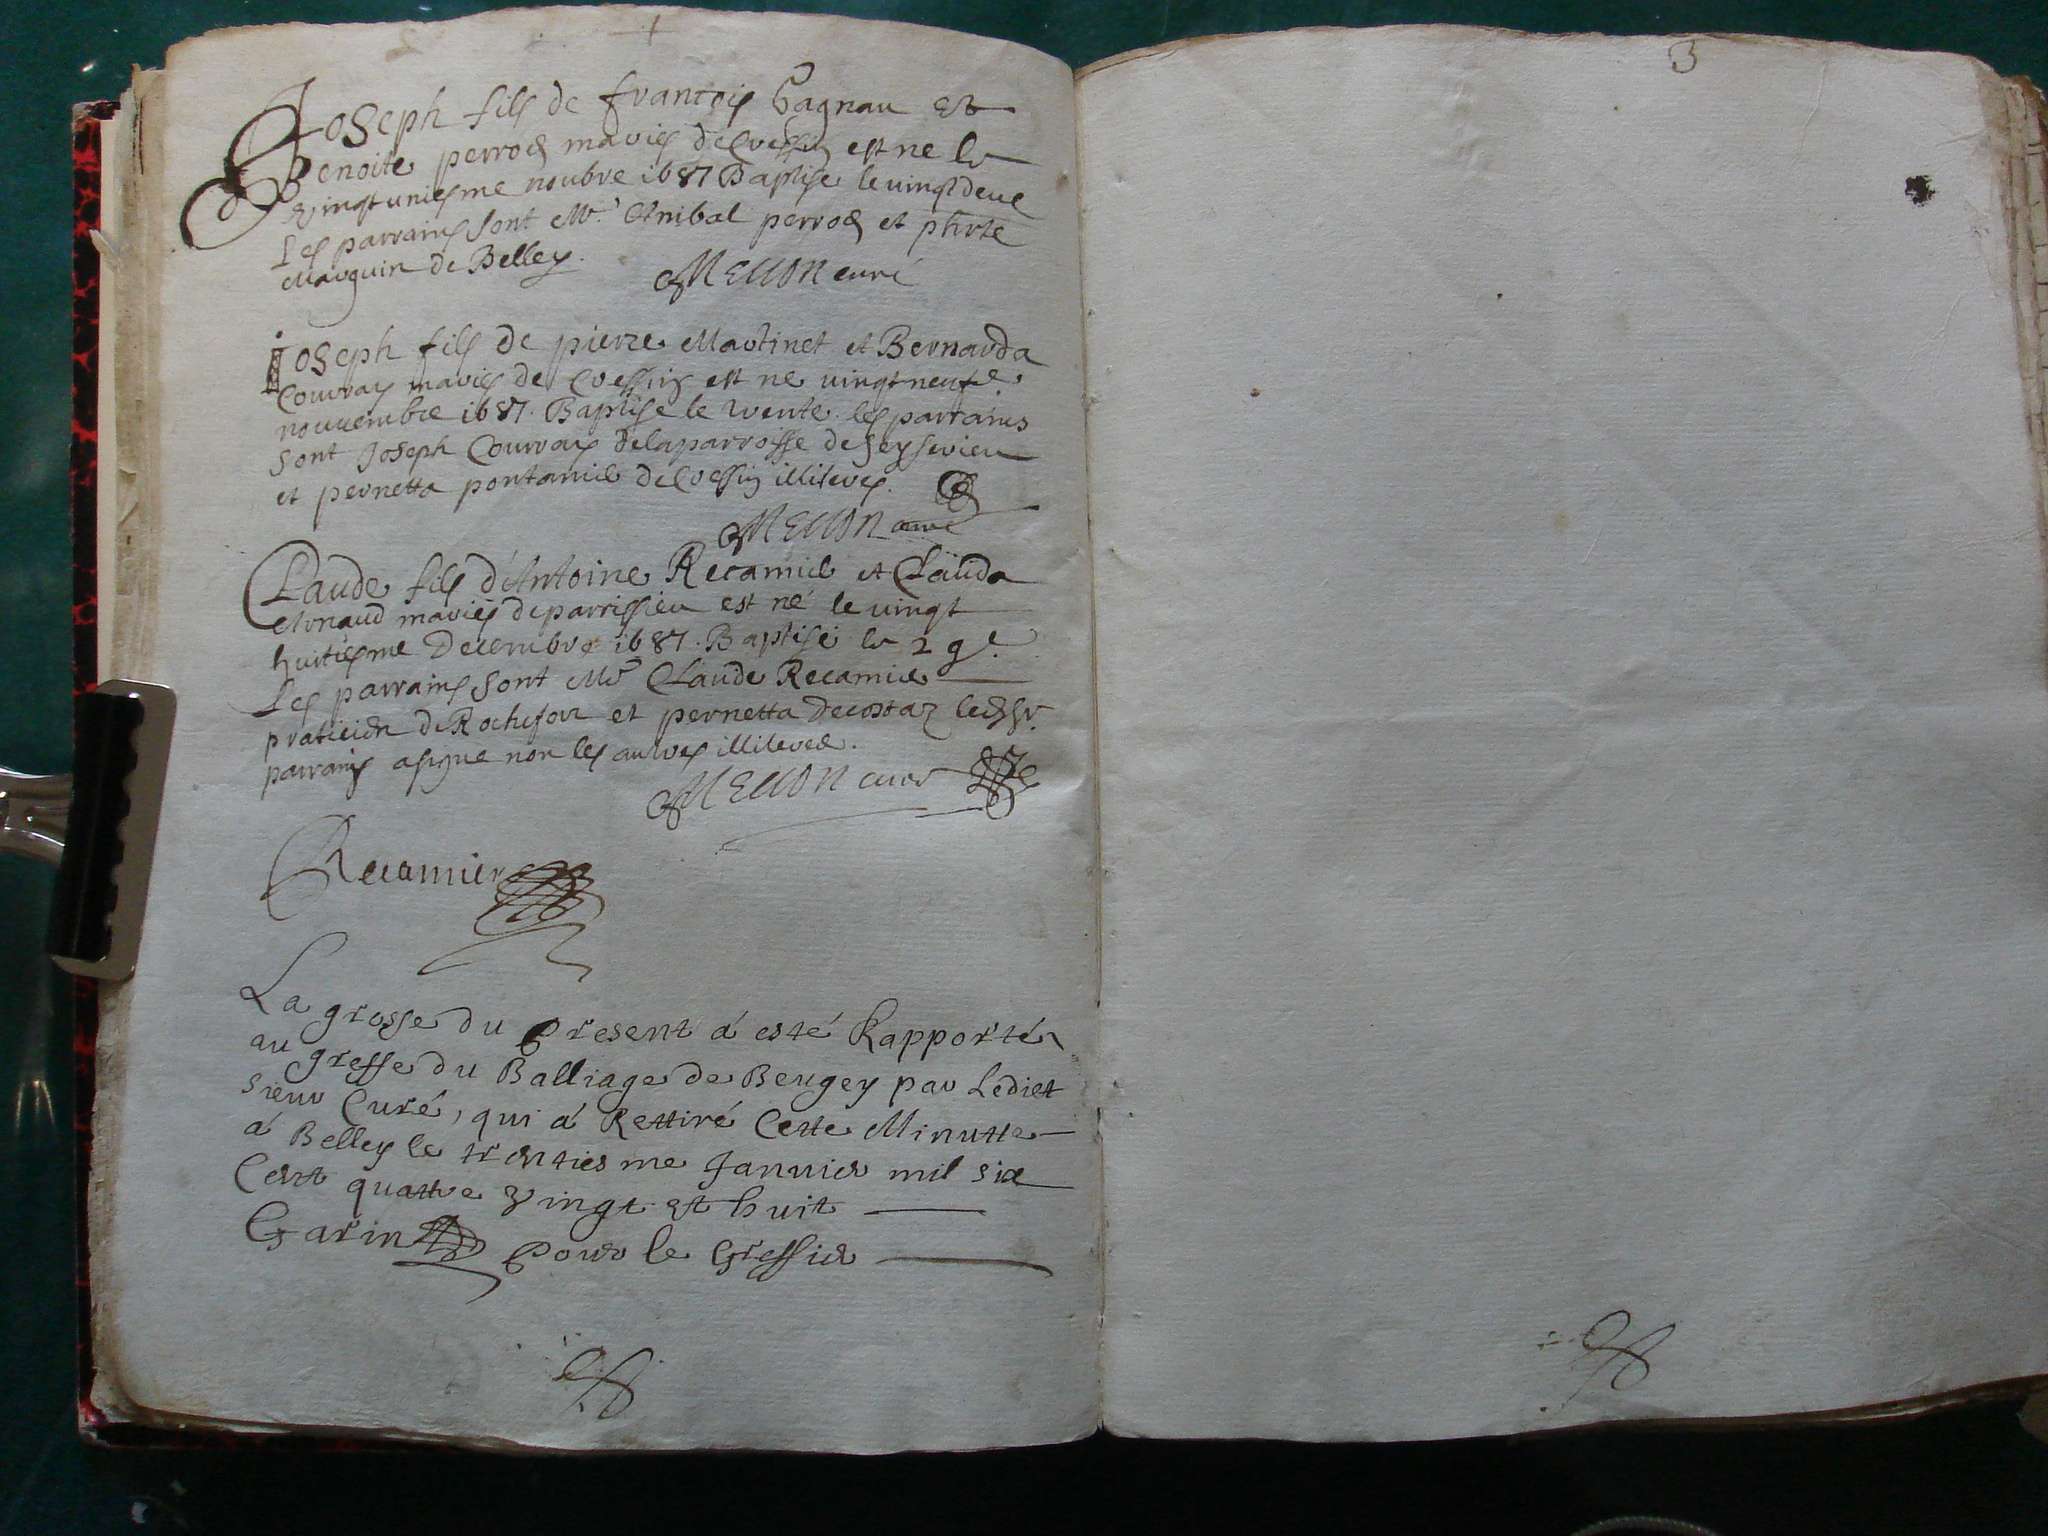 Joseph fils de francois Gagnau Et
Benoite perrod maries de Cressin est ne le
vingt uniesme noubre 1687 Baptise le vingt deux
Les parrains sont Mr. Anibal perrod et
Mauguin de Belley.
MELLON curé
Joseph fils de pierre Martinet et Bernarda
Courray maries de Cressin est ne vingt neufe
nouvembre 1687. Baptise le trente. les parrains
sont Joseph Courray de la parroisse de seyserieu
et pernetta pontanier de Cressin illiteres.
MELLON curé
Claude fils d'Antoine Recamier et Clauda
Arnaud mariés de parrissieu est né le vingt
huitiesme Decembre 1687. Baptisé le 29e.
Les parrains sont Mr Claude Recamier
praticien de Rochefort et pernetta decostaz ledt Sr.
parrains a signe non les autres illiteres.
MELLON curé
Recamier
La grosse du present á esté Rapporté
au greffe du Balliage de Beugey par Lediet
sieur Curé, qui á Rettiré Cette Minutte
á Belley le trentiesme Janvier mil six
Cent quattre vingt et huit
Garin pour le Greffier
3